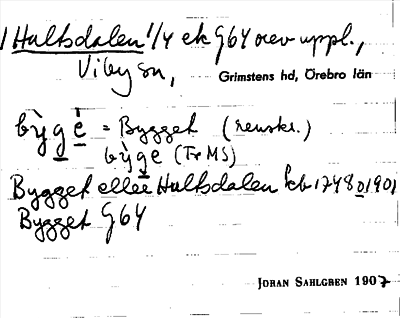 1 Hultsdalen 1/4 ek G64 orev uppl.,
Viby sn, Grimstens hd, Örebro län
by̆gè = Bygget (renskr.)
bỳge (Tr MS)
Bygget eller Hultsdalen kb 1748 o 1901
Bygget G64
JOHAN SAHLGREN 1907